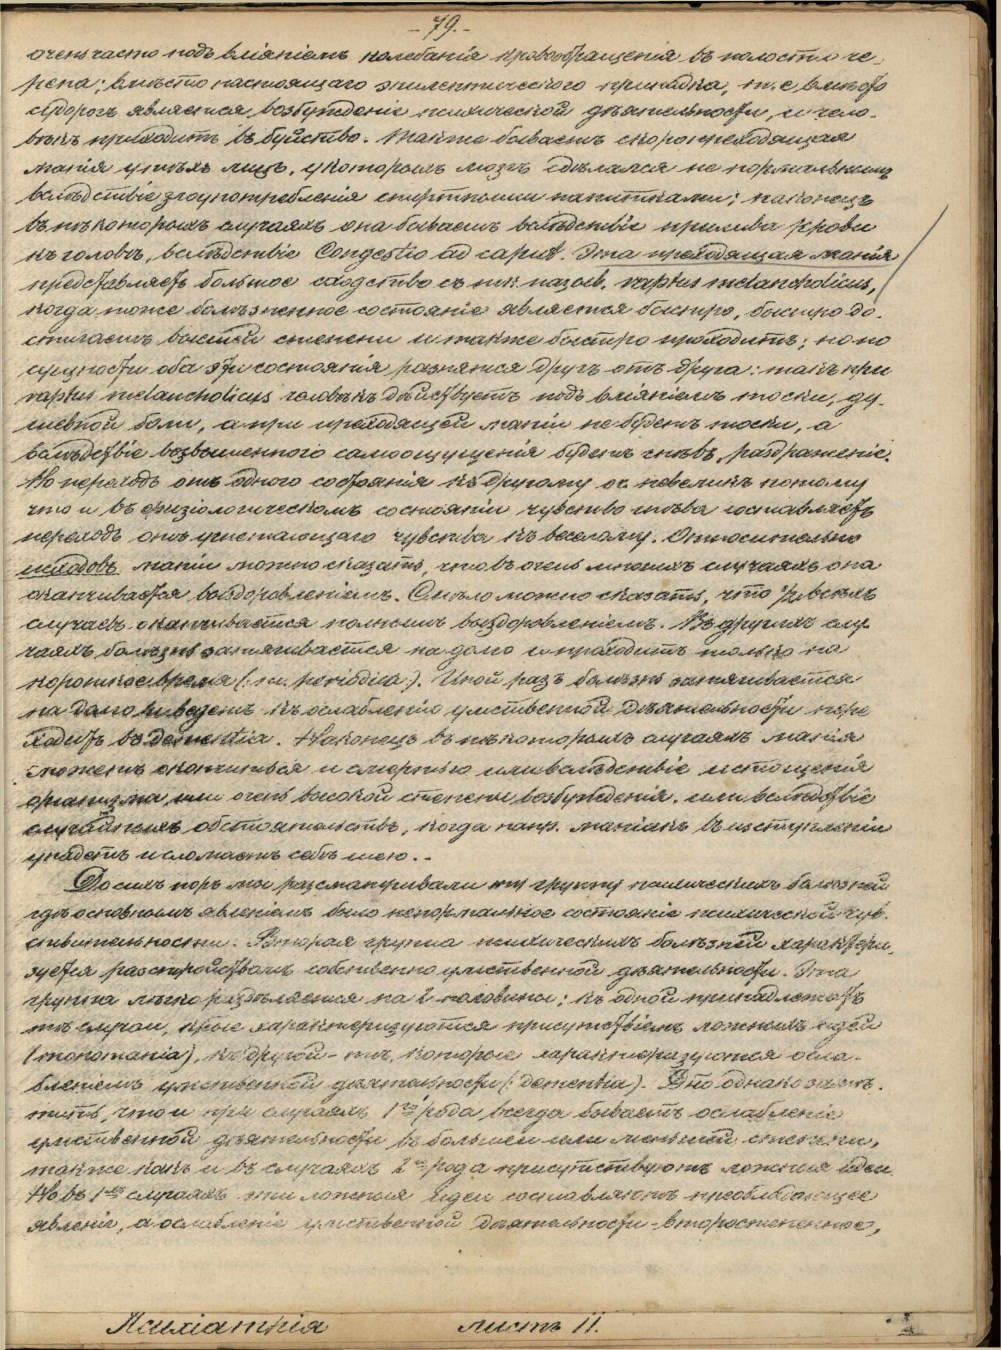 -79.-
очень часто подъ вліяніемъ колебанія кровообращенія въ полости че-
репа; вмѣсто настоящаго эпилептическаго припадка, т. е. вмѣсто
судорогъ является возбужденіе психической дѣятельности, и чело-
вѣкъ приходитъ въ буйство. Также бываетъ скоропреходящая
манія у тѣхъ лицъ, у которыхъ мозгъ сдѣлался не нормальнымъ
вслѣдствіе злоупотребленія спиртными напитками; наконецъ
въ нѣкоторыхъ случаяхъ она бываетъ вслѣдствіе прилива крови
къ головѣ, вслѣдствіе Congestio ad caput. Эта преходящая манія
представляетъ большое сходство съ так. назыв. raptus melancholicus,
когда тоже болѣзненное состояніе является быстро, быстро до-
стигаетъ высшей степени и также быстро проходитъ; но по
сущности оба эти состоянія разнятся другъ отъ друга: такъ при
raptus melancholicus человѣкъ дѣйствуетъ подъ вліяніемъ тоски, ду-
шевной боли, а при преходящей маніи не будетъ тоски, а
вслѣдствіе возвышеннаго самоощущенія будетъ гнѣвъ, раздраженіе.
Но переходъ отъ одного состоянія къ другому не великъ потому
что и въ физіологическомъ состояніи чувство гнѣва составляетъ
переходъ отъ угнетающаго чувства къ веселому. Относительно
исходовъ маніи можно сказать, что въ очень многихъ случаяхъ она
оканчивается выздоровленіемъ. Смѣло можно сказать, что ½ всѣхъ
случаевъ оканчивается полнымъ выздоровленіемъ. Въ другихъ слу-
чаяхъ болѣзнь затягивается на долго и проходитъ только на
короткое время (: m. periodica :). Иной разъ болѣзнь затягивается
на долго и ведетъ къ ослабленію умственной дѣятельности пере
ходитъ въ Dementia. Наконецъ въ нѣкоторыхъ случаяхъ манія
можетъ окончиться и смертью или вслѣдствіе истощенія
организма, или очень высокой степени возбужденія, или вслѣдствіе
случайныхъ обстоятельствъ, когда напр. маніакъ въ изступленіи
упадетъ и сломаетъ себѣ шею. -
До сихъ поръ мы разсматривали ту группу психическихъ болѣзней
гдѣ основнымъ явленіемъ было ненормальное состояніе психической чув-
ствительности. Вторая группа психическихъ болѣзней характери-
зуется разстройствомъ собственно умственной дѣятельности. Эта
группа легко раздѣляется на 2 половины; къ одной принадлежатъ
тѣ случаи, крые характеризуются присутствіемъ ложныхъ идей
(monomania), къ другой - тѣ, которые характеризуются осла-
бленіемъ умственной дѣятельности (: dementia). Это однако замѣ-
тить, что и при случаяхъ 1го рода всегда бываетъ ослабленіе
умственной дѣятельности въ большей или меньшей степени,
также какъ и въ случаяхъ 2го рода присутствуютъ ложныя идеи.
Но въ 1хъ случаяхъ эти ложныя идеи составляютъ преобладающее
явленіе, а ослабленіе умственной дѣятельности - второстепенное,
Психіатрія листъ 11.